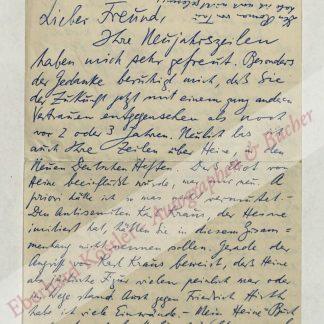 Lieber Freund,
Ihre Neujahrszeilen
haben mich sehr gefreut. Besonders
der Gedanke beruhigt mich, daß Sie
der Zukunft jetzt mit einem ganz andern
Vertrauen entgegensehen als noch
vor 2 oder 3 Jahren. Neulich las
auch Ihre Zeilen über Heine, in den
Neuen Deutschen Heften. Daß Eliot von
Heine beeinflußt wurde, war mir neu. A
priori hätte ich so was nie vermutet.-
Den Antisemiten Karl Kraus, der Heine
imitiert hat, hätten Sie in diesem Zusam-
menhang nicht nennen sollen. Gerade der
Angriff von Karl Kraus beweist, daß Heine
als jüdische Figur vielen peinlich war oder
im Wege stand. Auch gegen Friedrich Hirth
habe ich viel Einwände.- Mein Heine-Buch
Eberhard Köstler Autographen & Bücher